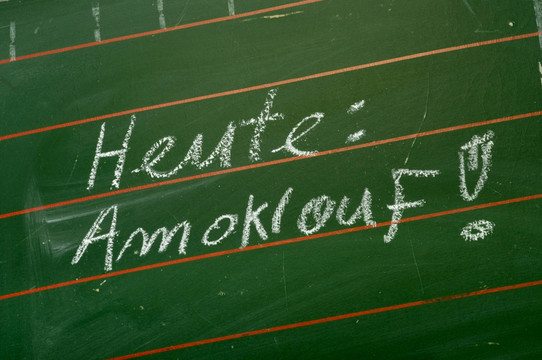 Heute:
Amoklauf!